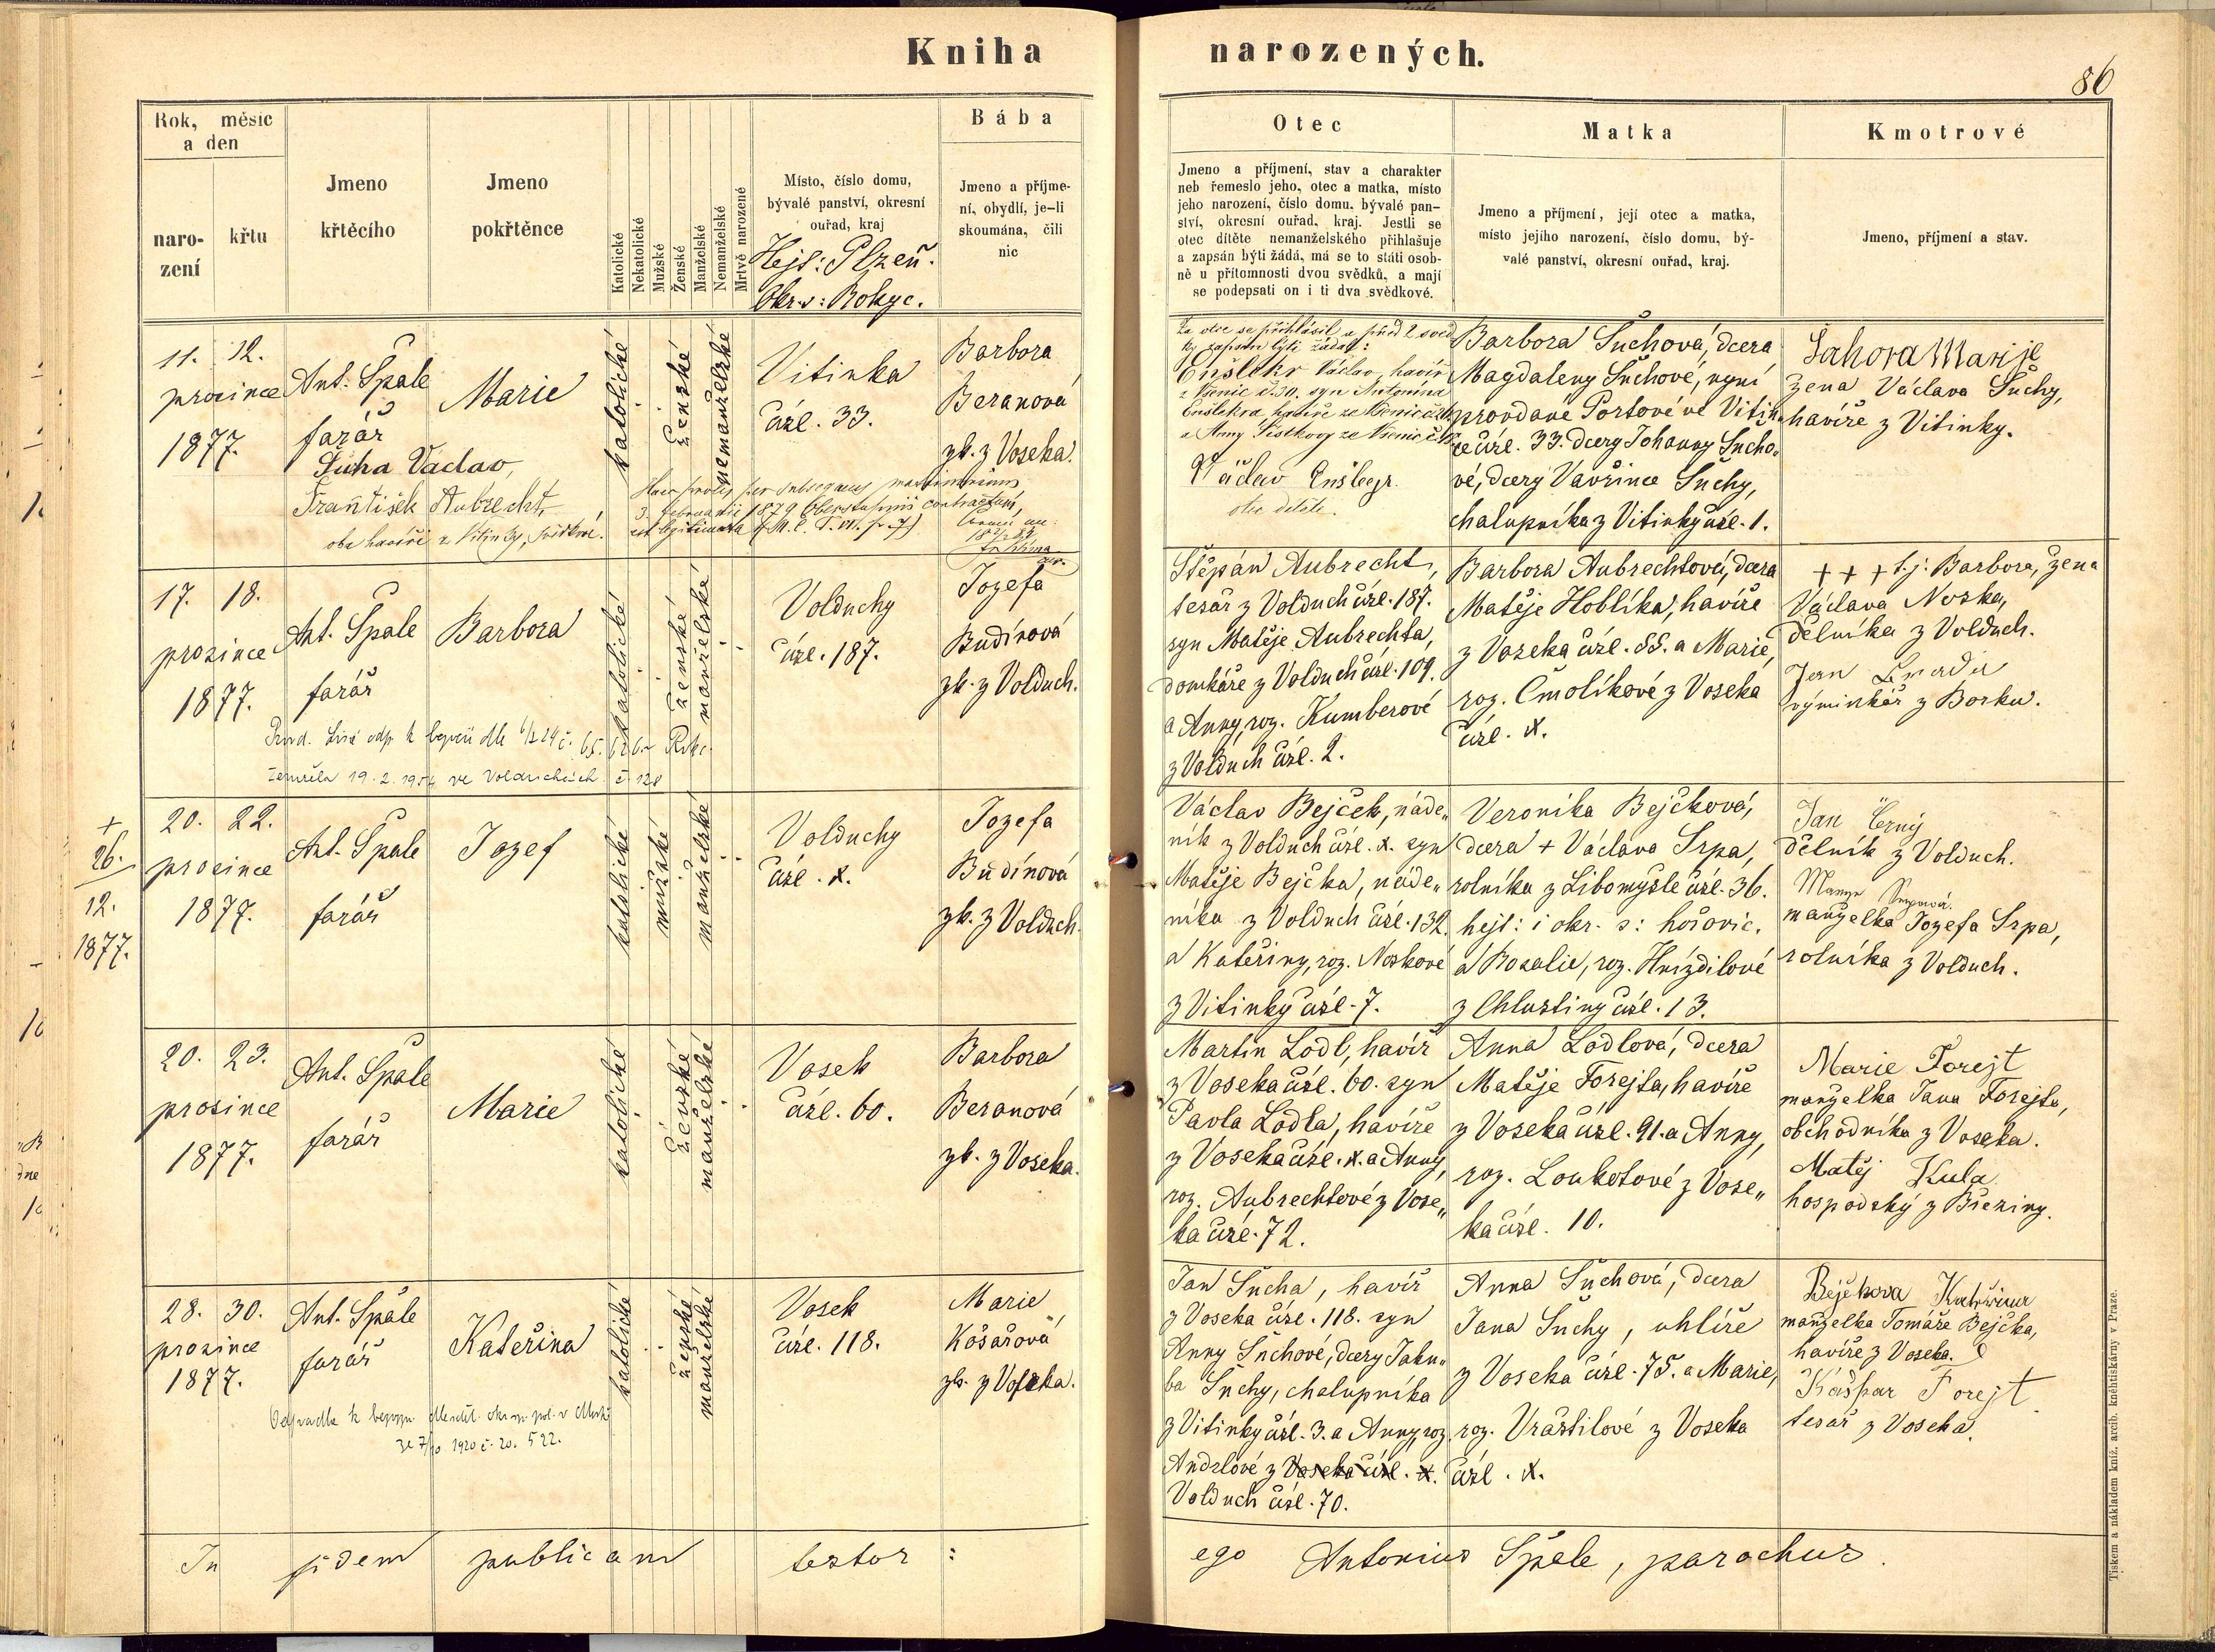 Kniha narozených.
86
Rok, měsíc
a den
naro-
zení
křtu
Jmeno
křtěcího
Jmeno
pokřtěnce
Katolické
Nekatolické
Mužské
Ženské
Manželské
Nemanželské
Mrtvě narozené
Místo, číslo domu,
bývalé panství, okresní
ouřad, kraj
Hejt: Plzeň.
Okr. s: Rokyc.
Bába
Jmeno a příjme-
ní, obydlí, je-li
skoumána, čili
nic
Otec
Jmeno a příjmení, stav a charakter
neb řemeslo jeho, otec a matka, místo
jeho narození, číslo domu, bývalé pan-
ství, okresní ouřad, kraj. Jestli se
otec dítěte nemanželského přihlašuje
a zapsán býti žádá, má se to státi osob-
ně u přítomnosti dvou svědků, a mají
se podepsati on i ti dva svědkové.
Matka
Jmeno a příjmení, její otec a matka,
místo jejího narození, číslo domu, bý-
valé panství, okresní ouřad, kraj.
Kmotrové
Jmeno, příjmení a stav.
11. 12.
prosince
1877.
Ant. Špale
farář
Marie
katolické
ženské
nemanželské
Vitinka
čísl. 33.
Barbora
Beranová
zk. z Voseka.
Sucha Vaclav,
František Aubrecht,
oba havíři z Vitinky, svědkové.
Haec proles per subsequens matrimonium
3. Februarii 1879 contractum,
est legitimata
Za otce se přihlásil a před 2 svěd
ky zapsán býti žádal:
Enšlekr Václav, havíř
syn Antonína
Václav Enšlegr.
otec dítěte.
Barbora Suchová, dcera
Magdaleny Suchové, nyní
provdané Portové ve Vitin„
ce čísl. 33. dcery Johanny Sucho„
vé, dcery Vavřince Suchy,
chalupníka z Vitinky čísl. 1.
Sahora Marije
žena Václava Suchy,
havíře z Vitinky.
17. 18.
prosince
1877.
Ant. Špale
farář
Barbora
katolické
ženské
manželské
Volduchy
čísl. 187.
Jozefa
Budínová
zk. z Volduch.
zemřela 19. 2. 1954 ve Volduchách č. 128
Štěpán Aubrecht,
tesař z Volduch čísl. 187.
syn Matěje Aubrechta,
domkáře z Volduch čísl. 109.
a Anny, roz. Kumberové
z Volduch čísl. 2.
Barbora Aubrechtová, dcera
Matěje Hoblíka, havíře
z Voseka čísl. 88. a Marie,
roz. Čmolíkové z Voseka
čísl. x.
+ + + t. j. Barbora, žena
Václava Noska,
dělníka z Volduch.
Jan
výminkář z Borku.
+
26.
12.
1877.
20. 22.
prosince
1877.
Ant. Špale
farář
Jozef
katolické
mužské
manželské
Volduchy
čísl. x.
Jozefa
Budínová
zk. z Volduch.
Václav Bejček, náde„
ník z Volduch čísl. x. syn
Matěje Bejčka, náde„
níka z Volduch čísl. 132.
a Kateřiny, roz. Noskové
z Vitinky čísl. 7.
Veronika Bejčková,
dcera + Václava Srpa,
rolníka z Libomyšle čísl. 36.
hejt: i okr. s: hořovic.
a Rosalie, roz. Hnízdilové
z Chlustiny čísl. 13.
Jan Černý
dělník z Volduch.
manželka Jozefa Srpa,
rolníka z Volduch.
20. 23.
prosince
1877.
Ant. Špale
farář
Marie
katolické
ženské
manželské
Vosek
čísl. 60.
Barbora
Beranová
zk. z Voseka.
Martin Lodl, havíř
z Voseka čísl. 60. syn
Pavla Lodla, havíře
z Voseka čísl. x. a Anny,
roz. Aubrechtové z Vose„
ka čísl. 72.
Anna Lodlová, dcera
Matěje Forejta, havíře
z Voseka čísl. 91. a Anny,
roz. Loukotové z Vose„
ka čísl. 10.
Marie Forejt
manželka Jana Forejta,
obchodníka z Voseka.
Matěj Kula
hospodský z Březiny.
28. 30.
prosince
1877.
Ant. Špale
farář
Kateřina
katolické
ženské
manželské
Vosek
čísl. 118.
Marie
Košařová
zk. z Voseka.
1920 č. 20. 522.
Jan Sucha, havíř
z Voseka čísl. 118. syn
Anny Suchové, dcery Jaku„
ba Suchy, chalupníka
z Vitinky čísl. 3. a Anny, roz.
Andrlové z Voseka čísl. x.
Volduch čísl. 70.
Anna Suchová, dcera
Jana Suchy, uhlíře
z Voseka čísl. 75. a Marie,
roz. Vrastilové z Voseka
čísl. x.
Bejčkova
manželka Tomáše Bejčka,
havíře z Voseka.
Kašpar Forejt
tesař z Voseka.
In fidem publicam testor:
ego Antonius Špale, parochus.
Tiskem a nákladem kníž. arcib. knihtiskárny v Praze.